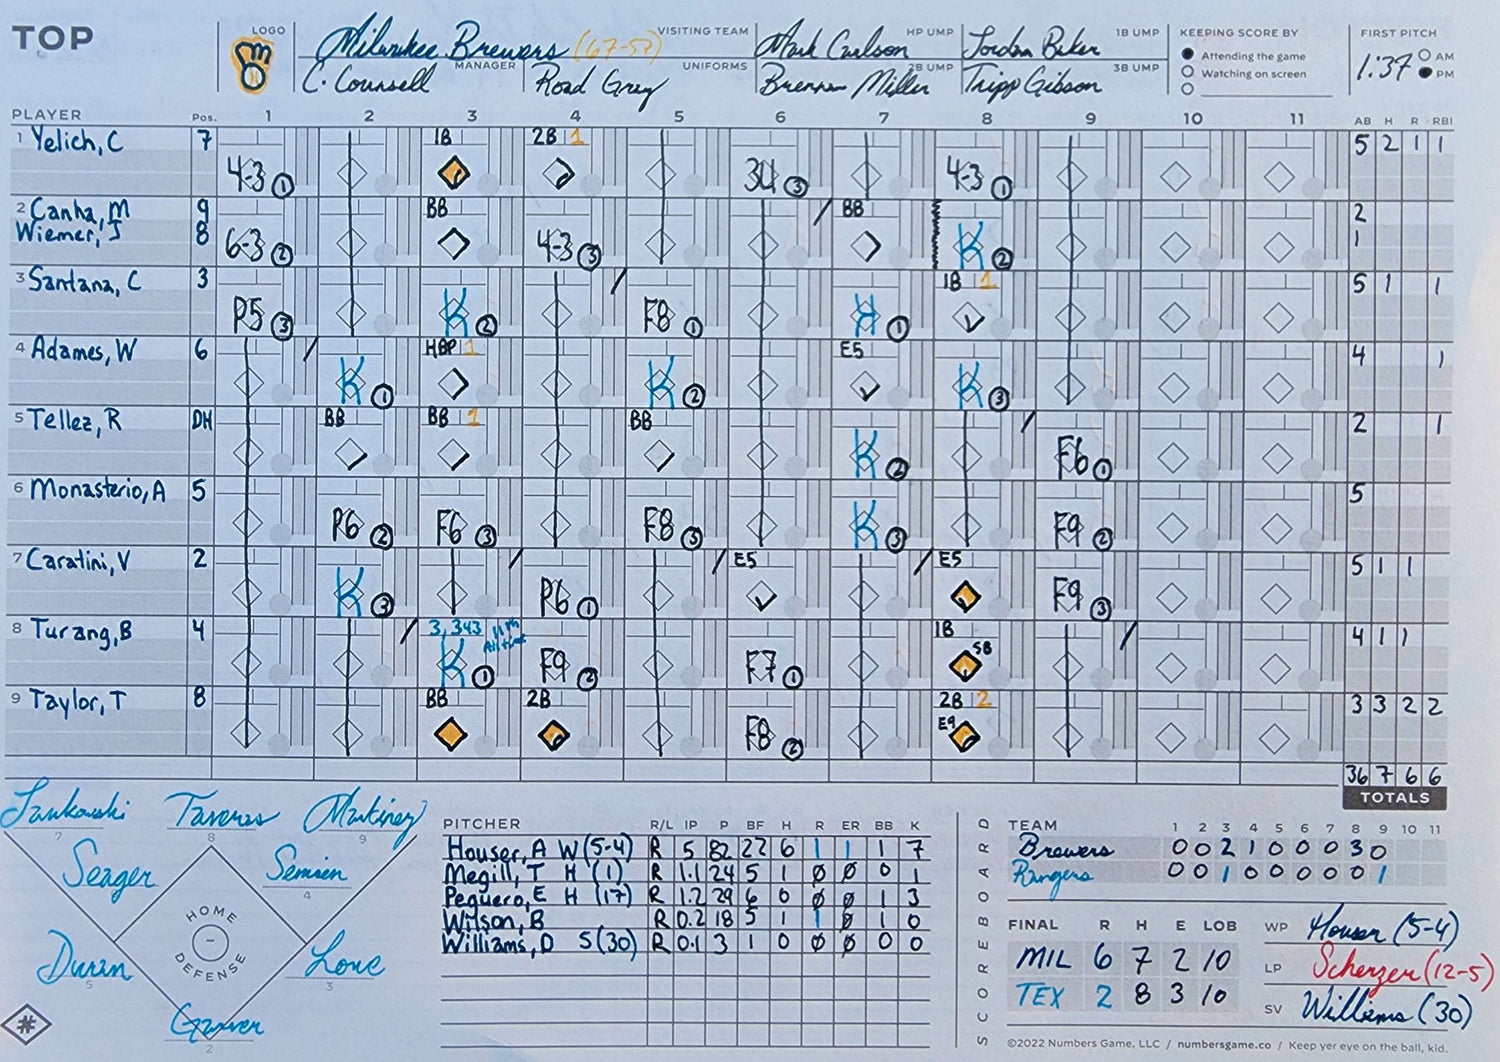 TOP
LOGO Milwaukee Brewers (67-57) VISITING TEAM Mark Carlson HP UMP Jordan Baker 1B UMP KEEPING SCORE BY FIRST PITCH
C. Counsell MANAGER Road Grey UNIFORMS Brennan Miller 2B UMP Tripp Gibson 3B UMP Attending the game 1:37 AM
Watching on screen PM
PLAYER Pos. 1 2 3 4 5 6 7 8 9 10 11 AB H R RBI
1 Yelich, C 7 1B 2B 1 5 2 1 1
4-3 1 3U 3 4-3 1
2 Canha, M 9 BB BB 2
Wiemer, J 8 6-3 2 4-3 3 K 2 1
3 Santana, C 3 1B 1 5 1 1
P5 3 K 2 F8 1 K 1
4 Adames, W 6 HBP 1 E5 4 1
K 1 K 2 K 3
5 Tellez, R DH BB BB 1 BB 2 1
K 2 F6 1
6 Monasterio, A 5 5
P6 2 F6 3 F8 3 K 3 F9 2
7 Caratini, V 2 E5 E5 5 1 1
K 3 P6 1 F9 3
8 Turang, B 4 3,343 11th All time 1B 4 1 1
K 1 F9 2 F7 1 SB
9 Taylor, T 8 BB 2B 2B 2 3 3 2 2
F8 2 E9
36 7 6 6
TOTALS
Jankowski Taveras Martinez
7 8 9
Seager Semien
4
HOME DEFENSE
Duran Lowe
5 3
Garver
2
#
PITCHER R/L IP P BF H R ER BB K
Houser, A W (5-4) R 5 82 22 6 1 1 1 7
Megill, T H (1) R 1.1 24 5 1 0 0 0 1
Peguero, E H (17) R 1.2 29 6 0 0 0 1 3
Wilson, B R 0.2 18 5 1 1 0 1 0
Williams, D S (30) R 0.1 3 1 0 0 0 0 0
SCOREBOARD
TEAM 1 2 3 4 5 6 7 8 9 10 11
Brewers 0 0 2 1 0 0 0 3 0
Rangers 0 0 1 0 0 0 0 0 1
FINAL R H E LOB WP Houser (5-4)
MIL 6 7 2 10 LP Scherzer (12-5)
TEX 2 8 3 10 SV Williams (30)
©2022 Numbers Game, LLC / numbersgame.co / Keep yer eye on the ball, kid.